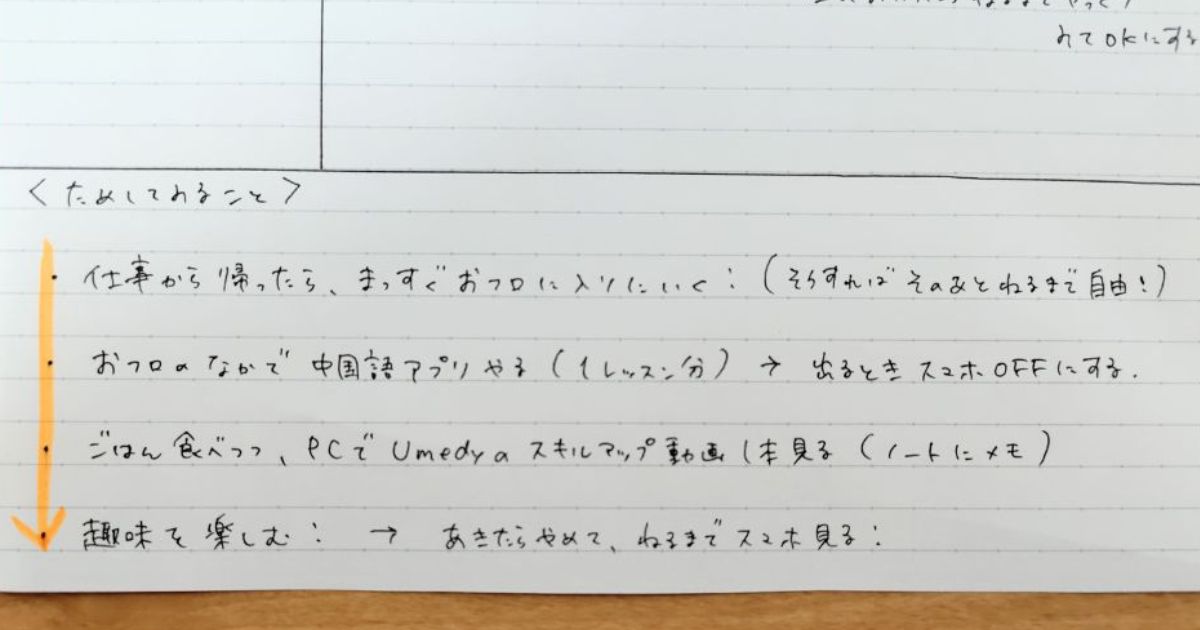 みてOKにする
<ためしてみること>
・仕事から帰ったら、まっすぐおフロに入りにいく:(そうすればそのあとねるまで自由!)
・おフロのなかで中国語アプリやる(1レッスン分)→出るときスマホOFFにする.
・ごはん食べつつ、PCでUmedyaスキルアップ動画1本見る(ノートにメモ)
・趣味を楽しむ:→あきたらやめて、ねるまでスマホ見る: